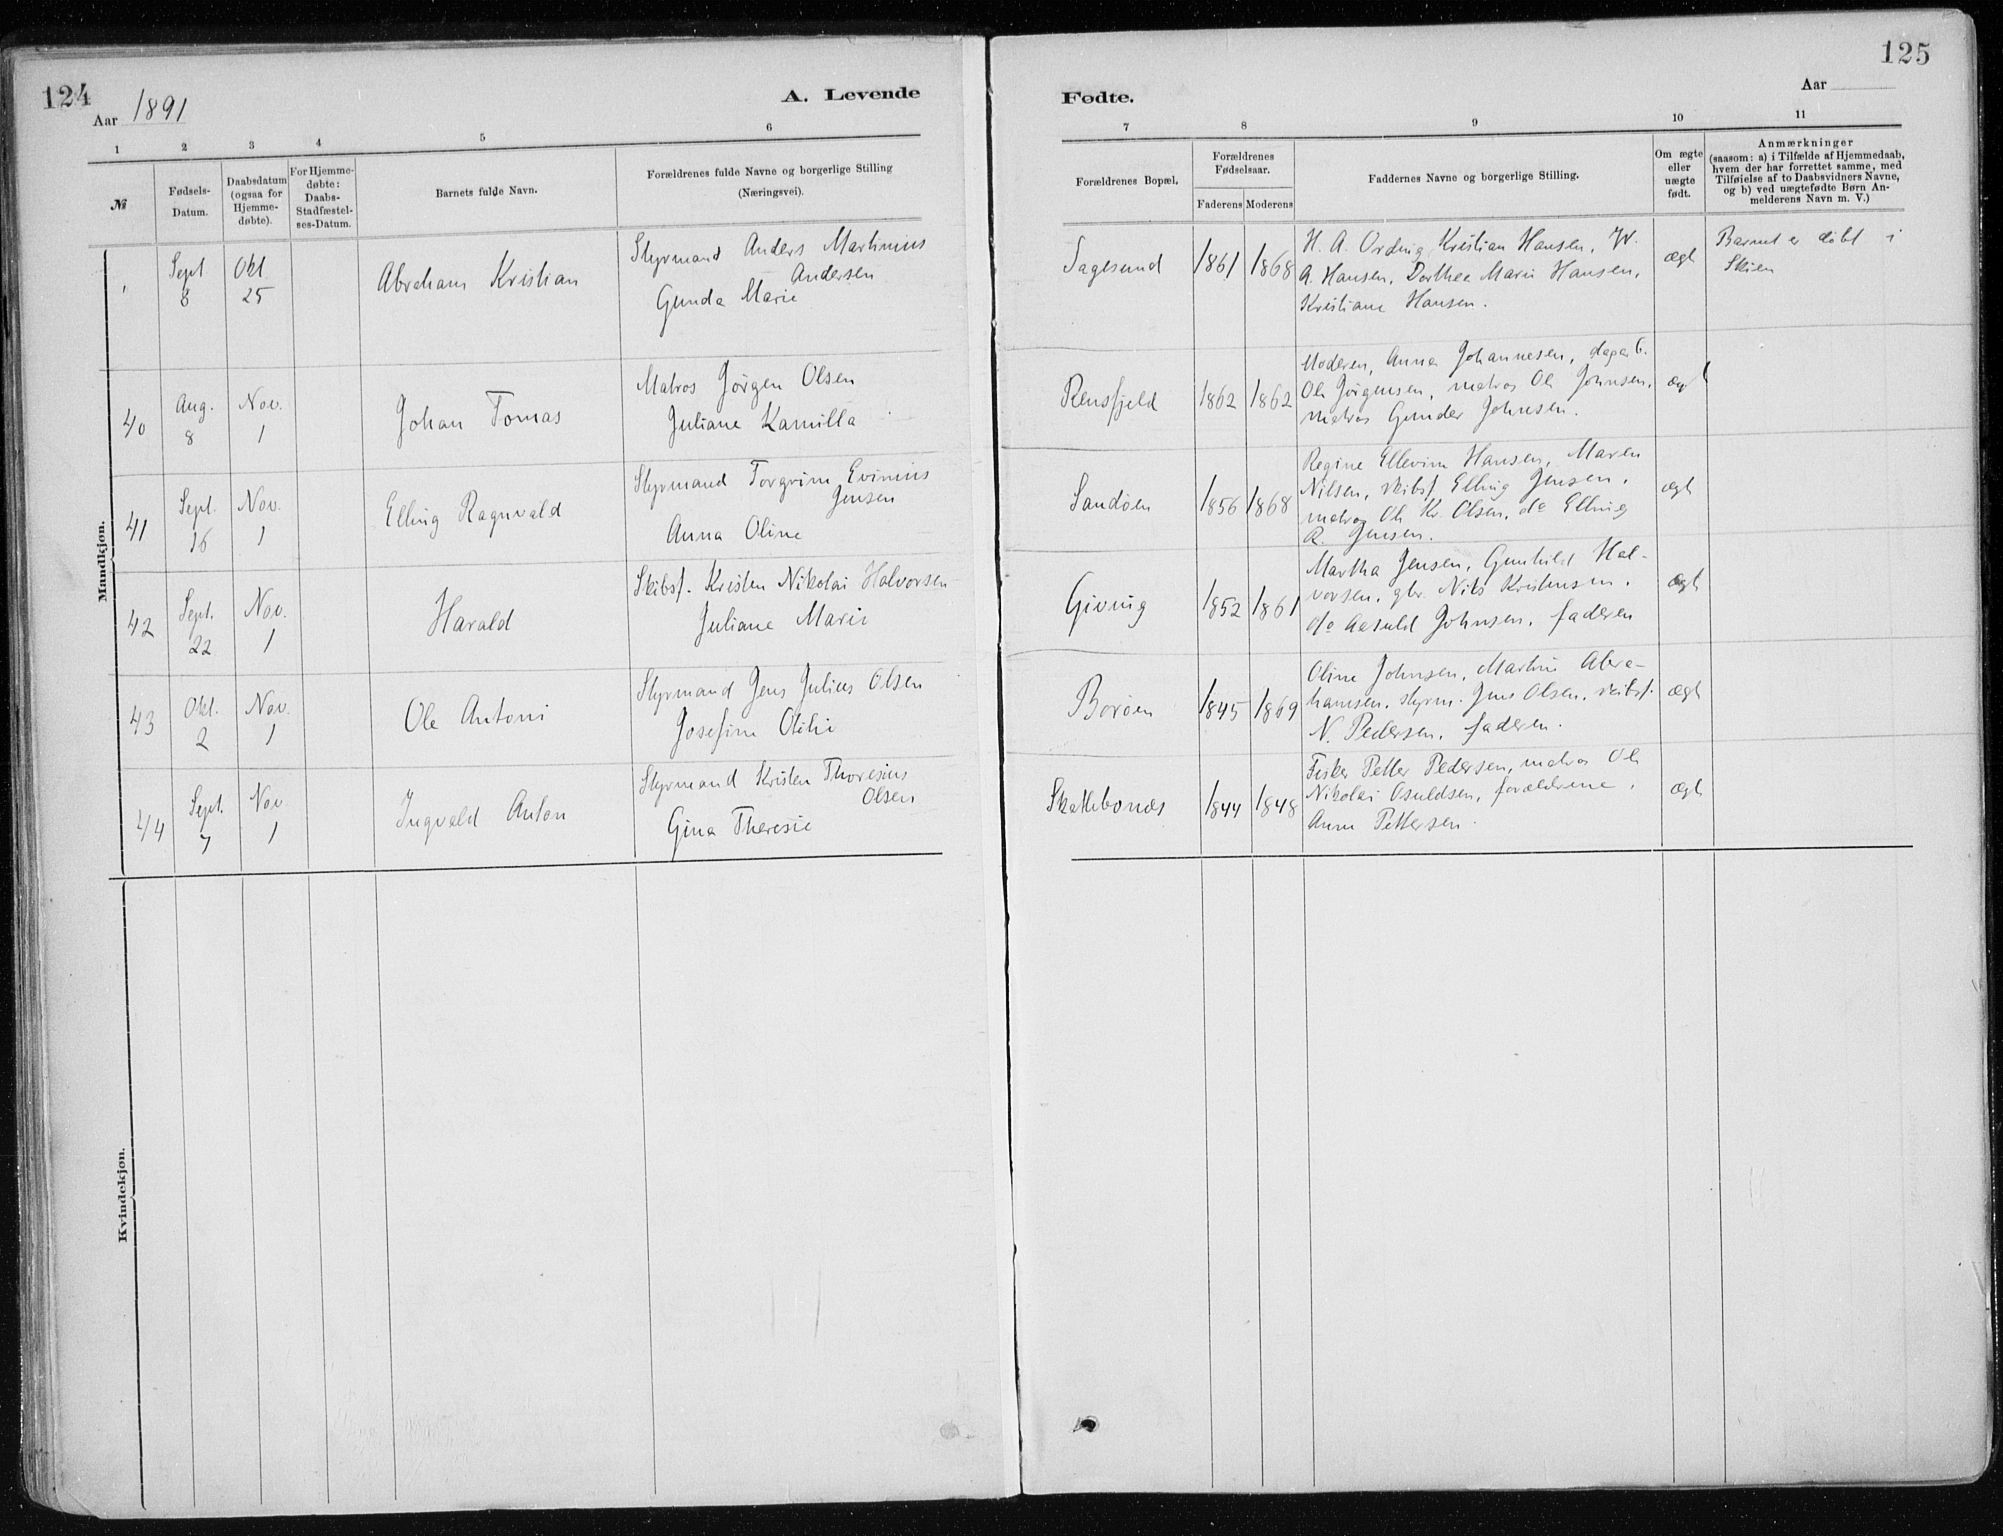 124
Aar 1891
A. Levende
1 2 3 4 5 6
№
Fødsels-
Datum.
Daabsdatum
(ogsaa for
Hjemme-
døbte).
For Hjemme-
døbte:
Daabs-
Stadfæstel-
ses-Datum.
Barnets fulde Navn.
Forældrenes fulde Navne og borgerlige Stilling
(Næringsvei).
Mandkjøn.
Sept Okt.
8 25
Abraham Kristian
Styrmand Anders Martinius
Andersen
Gunda Marie
40
Aug. Nov.
8 1
Johan Tomas
Matros Jørgen Olsen
Juliane Kamilla
41
Sept. Nov.
16 1
Elling Ragnvald
Styrmand Torgrim Evinius
Jensen
Anna Oline
42
Sept. Nov.
22 1
Harald
Skibsf. Kristen Nikolai Halvorsen
Juliane Marie
43
Okt. Nov.
2 1
Ole Antoni
Styrmand Jens Julius Olsen
Josefine Otilie
44
Sept. Nov
7 1
Ingvald Anton
Styrmand Kristen Thoresius
Olsen
Gina Theresie
Kvindekjøn.
125
Aar
Fødte.
7 8 9 10 11
Forældrenes Bopæl.
Forældrenes
Fødselsaar.
Faderens Moderens
Faddernes Navne og borgerlige Stilling.
Om ægte
eller
uægte
født.
Anmærkninger
(saasom: a) i Tilfælde af Hjemmedaab,
hvem der har forrettet samme, med
Tilføielse af to Daabsvidners Navne,
og b) ved uægtefødte Børn An-
melderens Navn m. V.)
Sagesund
1861 1868
H. A. Ording, Kristian Hansen,
A. Hansen, Dorthea Marie Hansen,
Kristiane Hansen.
ægt
Barnet er døbt i
Skien
Rensfjeld
1862 1862
Moderen, Anna Johannesen, dagarb.
Ole Jørgensen, matros Ole Johnsen,
matros Gunder Johnsen.
ægt
Sandøen
1856 1868
Regine Ellevine Hansen, Maren
Nilsen, skibsf. Elling Jensen,
matros Ole Kr. Olsen, do Elling
R. Jensen.
ægt
Giving
1852 1861
Martha Jensen, Gunhild Hal-
vorsen, gbr. Nils Kristensen,
do Aasuld Johnsen, faderen
ægt
Borøen
1845 1869
Oline Johnsen, Martine Abra-
hamsen, styrm. Jens Olsen, skibsf.
N. Pedersen, faderen.
ægt
Skatlebonæs
1844 1848
Fisker Petter Pedersen, matros Ole
Nikolai Osuldsen, forældrene,
Anne Pettersen.
ægt